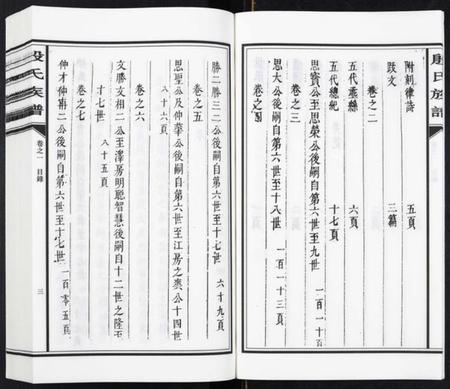 殷氏族譜
附刻律詩 五頁
跋文 三篇
卷之二
五代藨縣 六頁
五代總紀 十七頁
卷之三
思寶公至思榮公後嗣自第六世至九世 一百一十頁
思大公後嗣自第六世至十八世 一百一十三頁
卷之四
勝二勝三二公後嗣自第六世至十七世 六十九頁
卷之五
思聖公及仲華公後嗣自第六世至江房之奥公十四世
八十六頁
卷之六
文勝文相二公至澤房明聰智慧後嗣自十二世之隆至
十七世 八十五頁
卷之七
仲才仲甯二公後嗣自第六世至十七世 一百零五頁
殷氏族譜
卷之一 目錄
三